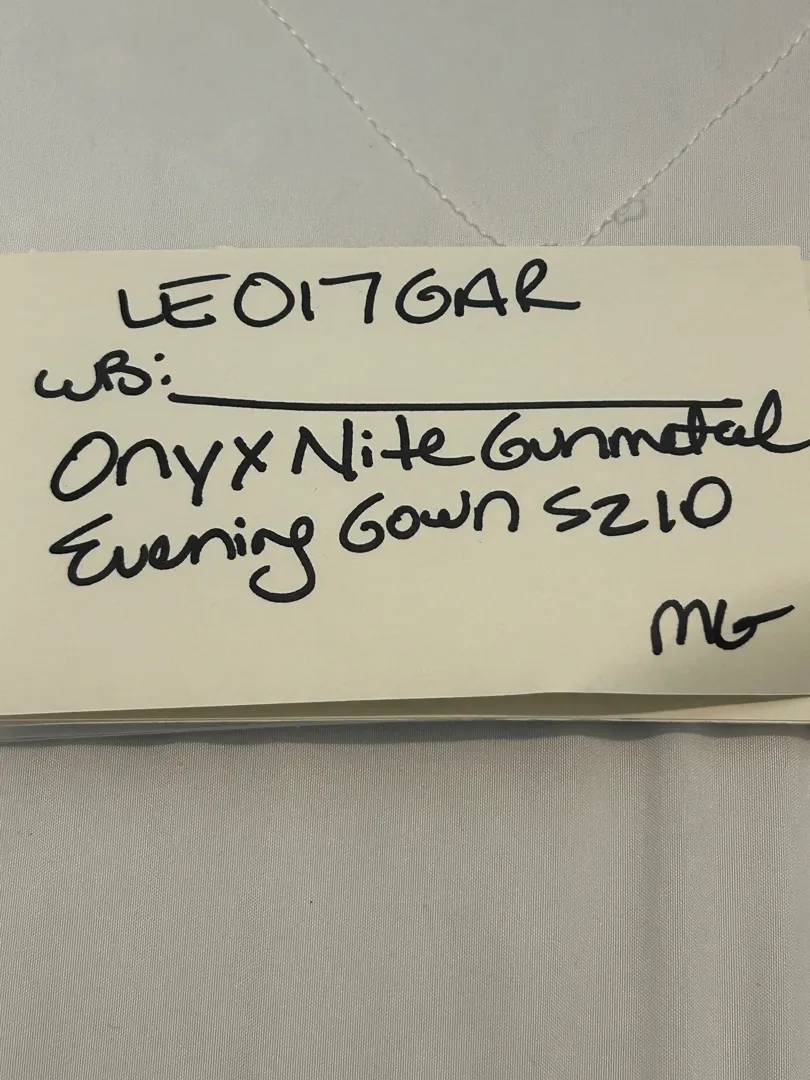 LE017GAR
WB:
Onyx Nite Gunmetal
Evening Gown SZ10
MG